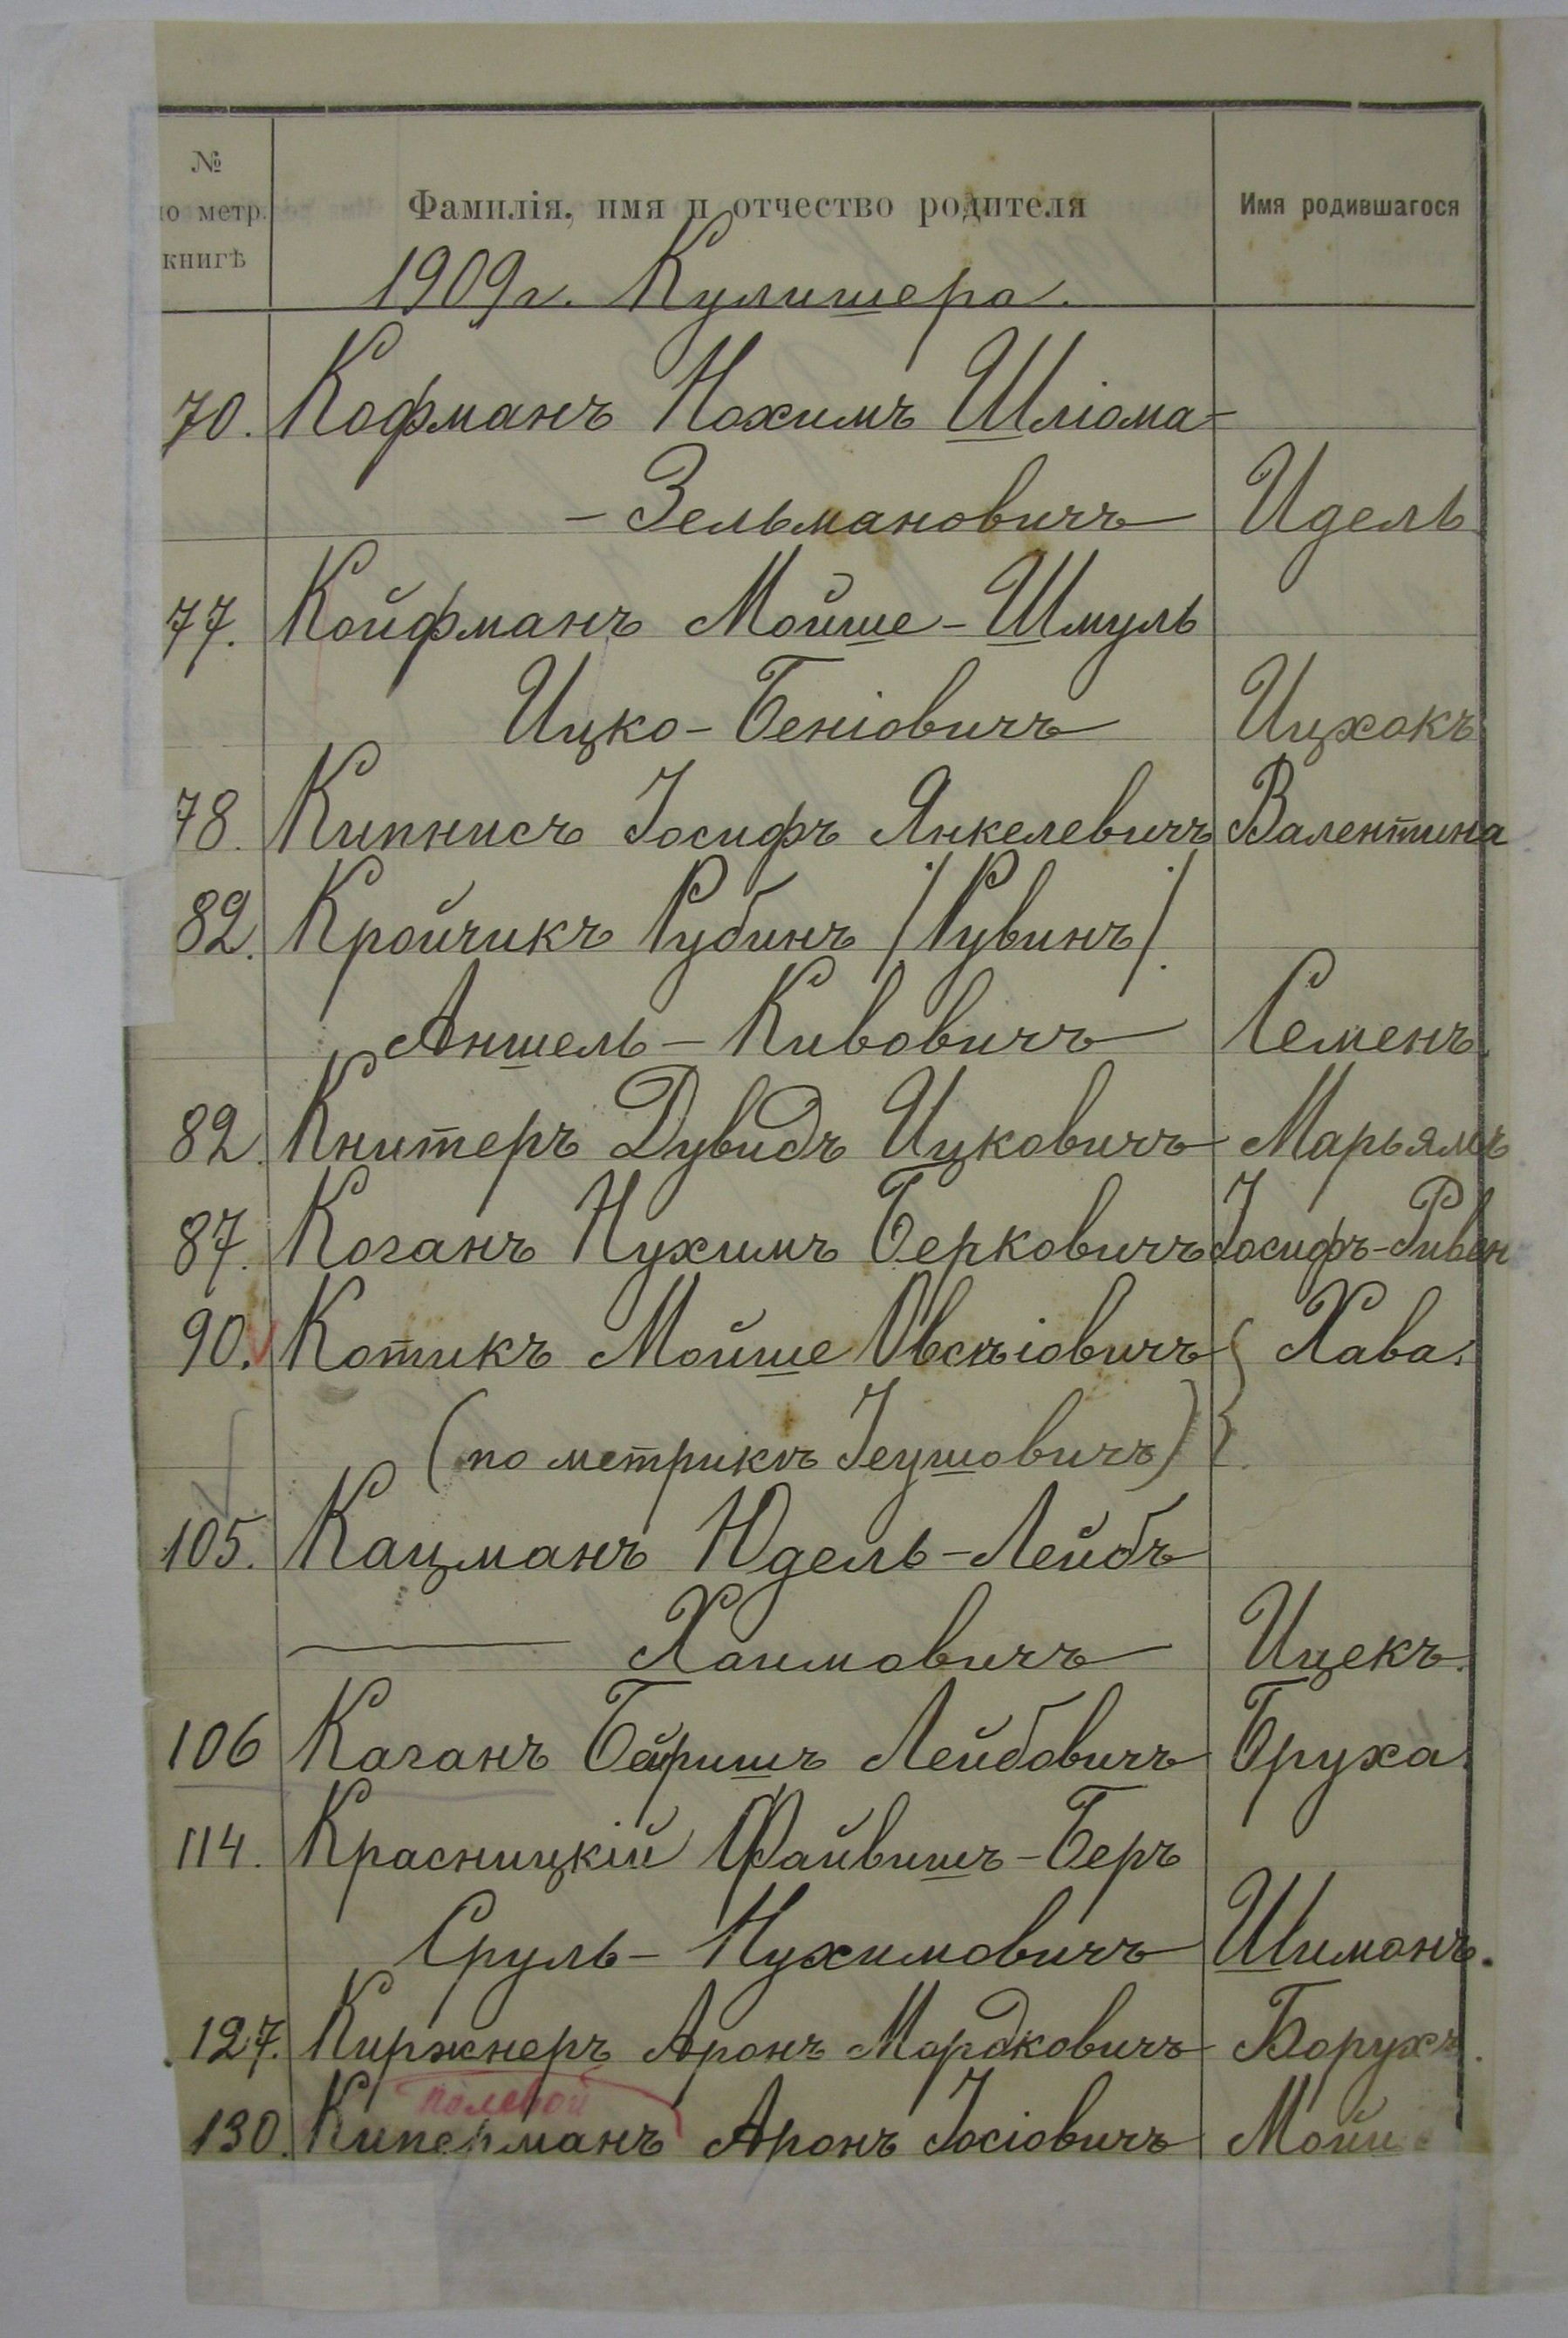 №
по метр.
книгѣ
Фамилія, имя и отчество родителя
Имя родившагося
1909 г. Кулишера.
70. Кофманъ Нохимъ Шліома-
- Зельмановичъ Идель
77. Койфманъ Мойше-Шмуль
Ицко-Беніовичъ Ицхокъ
78. Кипнисъ Іосифъ Янкелевичъ Валентина
82. Кройчикъ Рубинъ /Рувинъ/
Аншель-Кивовичъ Семенъ.
82. Книтеръ Дувидъ Ицковичъ Марьямъ
87. Коганъ Нухимъ Берковичъ Іосифъ-Ривен
90. Котикъ Мойше Овсѣіовичъ } Хава.
(по метрикѣ Іеушовичъ) }
105. Кацманъ Юдель-Лейбъ
Хаимовичъ Ицекъ.
106 Каганъ Беришъ Лейбовичъ Бруха.
114. Красницкій Файвишъ-Беръ
Сруль-Нухимовичъ Шимонъ.
127. Киржнеръ Аронъ Мордковичъ Борухъ.
полевой
130. Киперманъ Аронъ Іосіовичъ